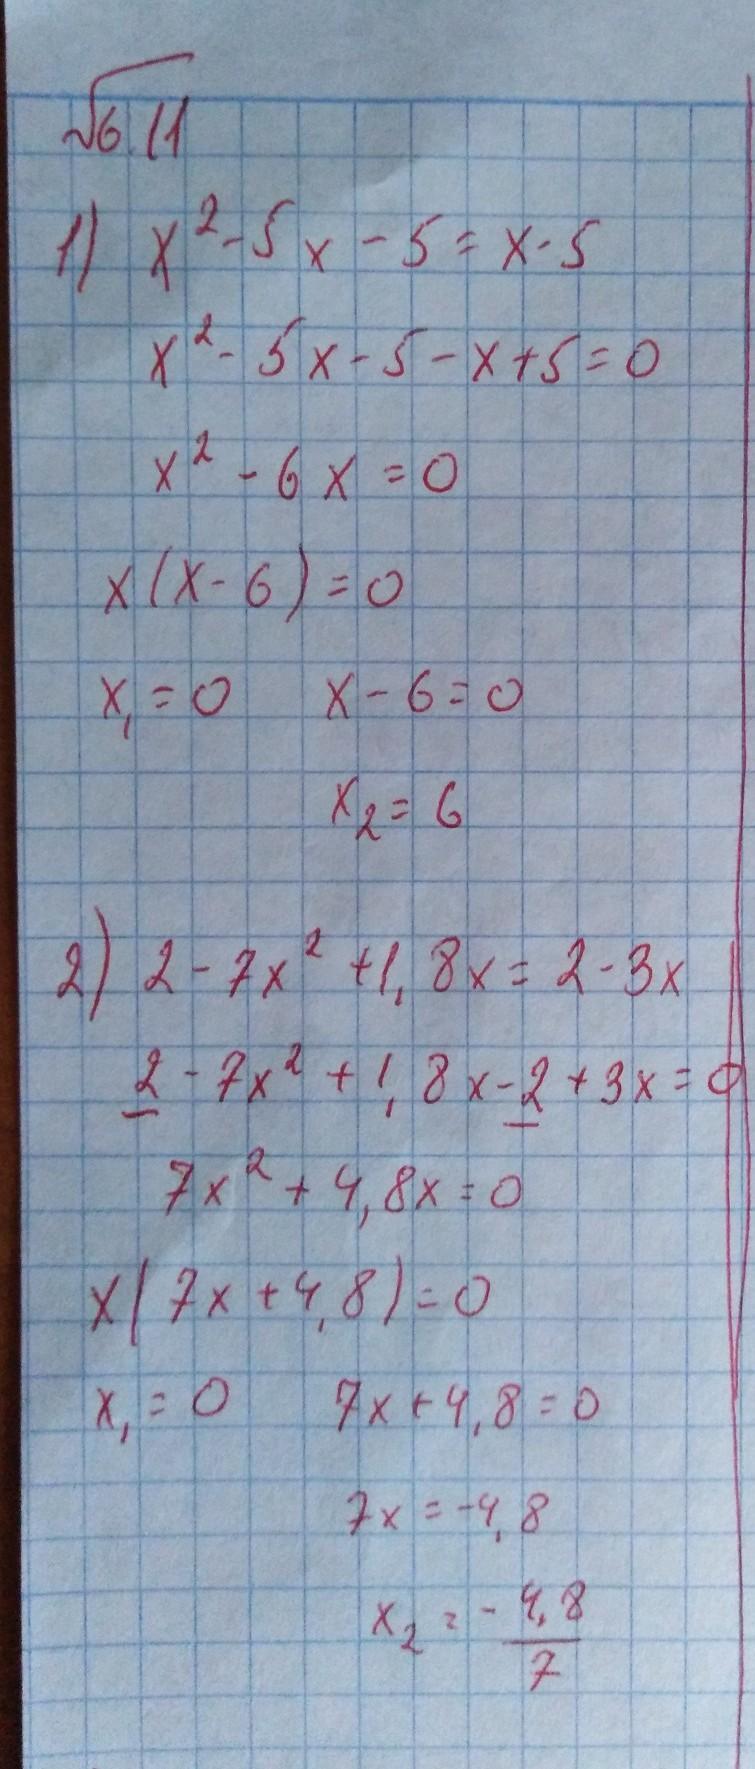 √6.11
1) x² - 5x - 5 = x - 5
x² - 5x - 5 - x + 5 = 0
x² - 6x = 0
x(x - 6) = 0
x₁ = 0 x - 6 = 0
x₂ = 6
2) 2 - 7x² + 1,8x = 2 - 3x
2 - 7x² + 1,8x - 2 + 3x = 0
7x² + 4,8x = 0
x(7x + 4,8) = 0
x₁ = 0 7x + 4,8 = 0
7x = -4,8
x₂ = - 4,8/7